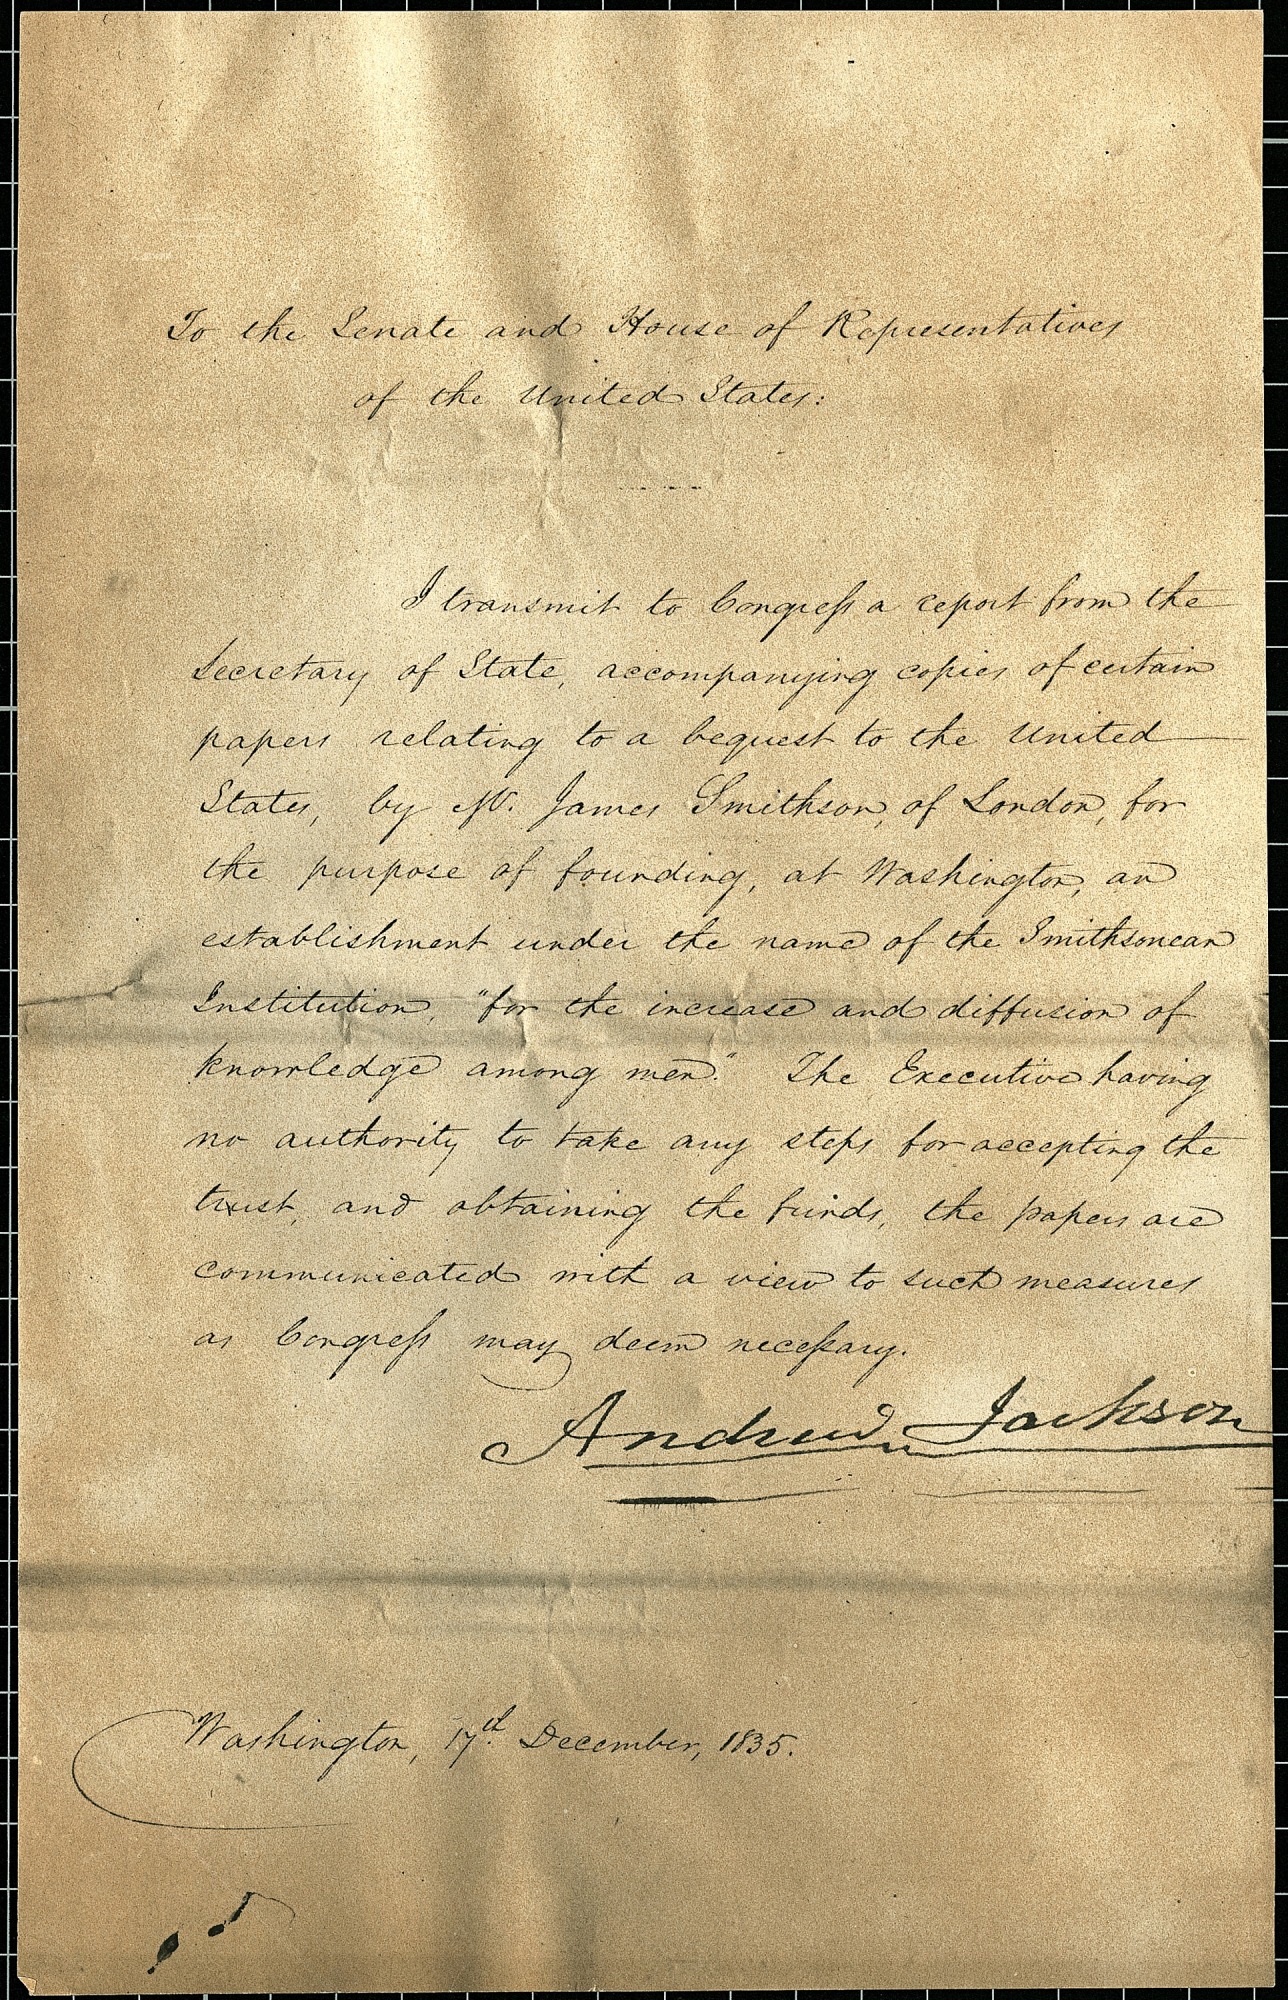 To the Senate and House of Representatives
of the United States:
I transmit to Congress a report from the
Secretary of State, accompanying copies of certain
papers relating to a bequest to the United
States, by Mr. James Smithson, of London, for
the purpose of founding, at Washington, an
establishment under the name of the Smithsonean
Institution, "for the increase and diffusion of
knowledge among men." The Executive having
no authority to take any steps for accepting the
trust, and obtaining the funds, the papers are
communicated with a view to such measures
as Congress may deem necessary.
Andrew Jackson
Washington, 17th December, 1835.